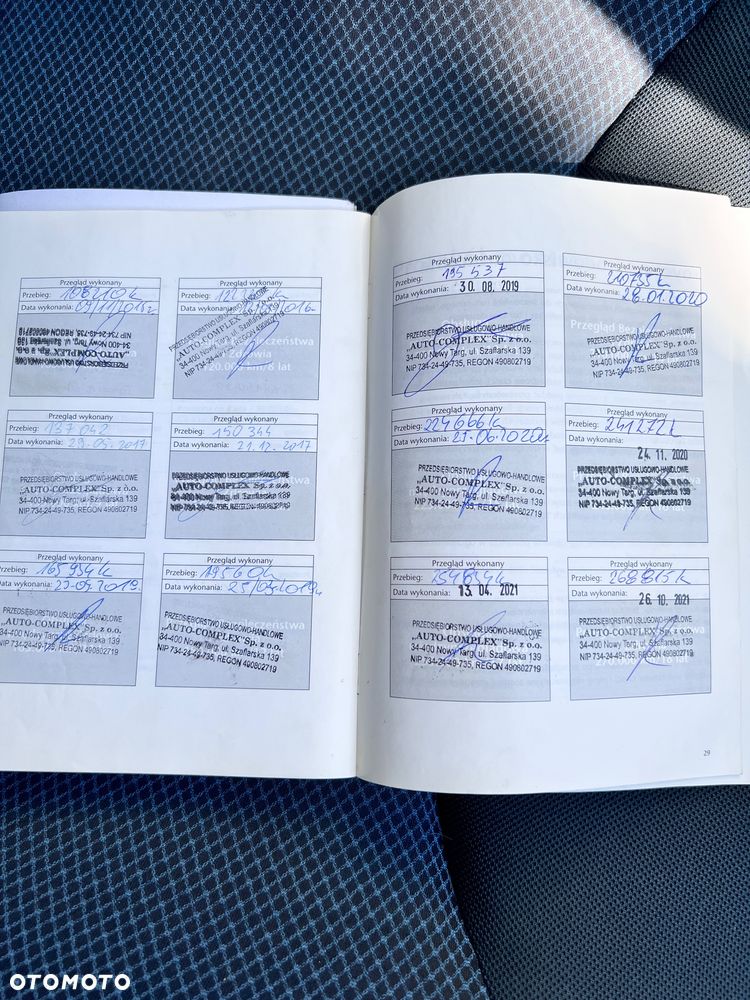 Przegląd wykonany
Przebieg: 108210k
Data wykonania:
PRZEDSIĘBIORSTWO USŁUGOWO-HANDLOWE
„AUTO-COMPLEX" Sp. z o.o.
34-400 Nowy Targ, ul. Szaflarska 139
NIP 734-24-49-735, REGON 490802719
Przegląd wykonany
Przebieg:
Data wykonania:
PRZEDSIĘBIORSTWO USŁUGOWO-HANDLOWE
„AUTO-COMPLEX" Sp. z o.o.
34-400 Nowy Targ, ul. Szaflarska 139
NIP 734-24-49-735, REGON 490802719
Przegląd wykonany
Przebieg: 137 042
Data wykonania: 29.05.2017
PRZEDSIĘBIORSTWO USŁUGOWO-HANDLOWE
„AUTO-COMPLEX" Sp. z o.o.
34-400 Nowy Targ, ul. Szaflarska 139
NIP 734-24-49-735, REGON 490802719
Przegląd wykonany
Przebieg: 150 344
Data wykonania: 21.12.2017
PRZEDSIĘBIORSTWO USŁUGOWO-HANDLOWE
„AUTO-COMPLEX" Sp. z o.o.
34-400 Nowy Targ, ul. Szaflarska 139
NIP 734-24-49-735, REGON 490802719
Przegląd wykonany
Przebieg:
Data wykonania:
PRZEDSIĘBIORSTWO USŁUGOWO-HANDLOWE
„AUTO-COMPLEX" Sp. z o.o.
34-400 Nowy Targ, ul. Szaflarska 139
NIP 734-24-49-735, REGON 490802719
Przegląd wykonany
Przebieg:
Data wykonania:
PRZEDSIĘBIORSTWO USŁUGOWO-HANDLOWE
„AUTO-COMPLEX" Sp. z o.o.
34-400 Nowy Targ, ul. Szaflarska 139
NIP 734-24-49-735, REGON 490802719
Przegląd wykonany
Przebieg: 195 537
Data wykonania: 30. 08. 2019
PRZEDSIĘBIORSTWO USŁUGOWO-HANDLOWE
„AUTO-COMPLEX" Sp. z o.o.
34-400 Nowy Targ, ul. Szaflarska 139
NIP 734-24-49-735, REGON 490802719
Przegląd wykonany
Przebieg:
Data wykonania: 28.01.2020
PRZEDSIĘBIORSTWO USŁUGOWO-HANDLOWE
„AUTO-COMPLEX" Sp. z o.o.
34-400 Nowy Targ, ul. Szaflarska 139
NIP 734-24-49-735, REGON 490802719
Przegląd wykonany
Przebieg: 224666k
Data wykonania: 27.06.2020r
PRZEDSIĘBIORSTWO USŁUGOWO-HANDLOWE
„AUTO-COMPLEX" Sp. z o.o.
34-400 Nowy Targ, ul. Szaflarska 139
NIP 734-24-49-735, REGON 490802719
Przegląd wykonany
Przebieg: 241272k
Data wykonania:
24. 11. 2020
PRZEDSIĘBIORSTWO USŁUGOWO-HANDLOWE
„AUTO-COMPLEX" Sp. z o.o.
34-400 Nowy Targ, ul. Szaflarska 139
NIP 734-24-49-735, REGON 490802719
Przegląd wykonany
Przebieg:
Data wykonania: 13. 04. 2021
PRZEDSIĘBIORSTWO USŁUGOWO-HANDLOWE
„AUTO-COMPLEX" Sp. z o.o.
34-400 Nowy Targ, ul. Szaflarska 139
NIP 734-24-49-735, REGON 490802719
Przegląd wykonany
Przebieg: 268815k
Data wykonania:
26. 10. 2021
PRZEDSIĘBIORSTWO USŁUGOWO-HANDLOWE
„AUTO-COMPLEX" Sp. z o.o.
34-400 Nowy Targ, ul. Szaflarska 139
NIP 734-24-49-735, REGON 490802719
29
OTOMOTO